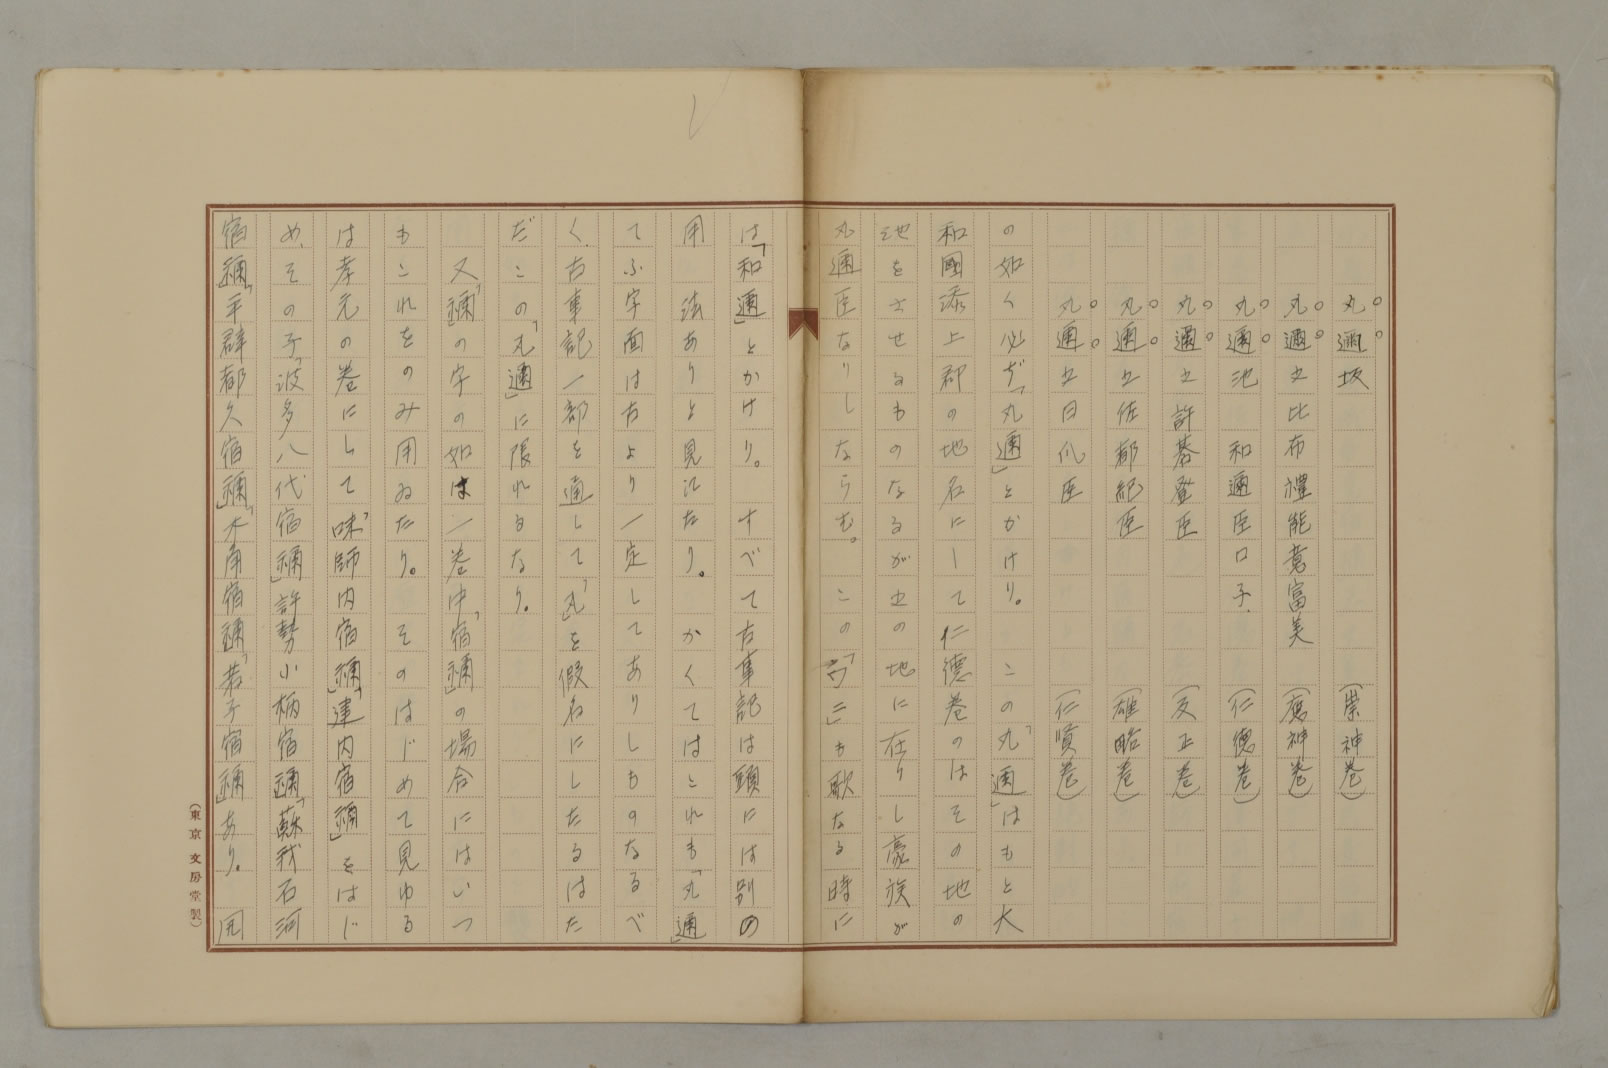 丸邇坂　（崇神巻）
丸邇之比布禮能意富美　（應神巻）
丸邇池　和邇臣口子　（仁徳巻）
丸邇之許碁登臣　（反正巻）
丸邇之佐都紀臣　（雄略巻）
丸邇之日爪臣　（仁賢巻）
の如く必ず「丸邇」とかけり。この「丸邇」はもと大
和國添上郡の地名にして仁徳巻のはその地の
池をさせるものなるが之の地に在りし豪族が
丸邇臣なりしならむ。この「ワニ」も歌なる時に
は「和邇」とかけり。すべて古事記は頭には別の
用法ありと見江たり。かくてはこれも「丸邇」
てふ字面は古より一定してありしものなるべ
く、古事記一部を通して「丸」を假名にしたるはた
だこの「丸邇」に限れるなり。
又「禰」の字の如は一巻中「宿禰」の場合にはいつ
もこれをのみ用ゐたり。そのはじめて見ゆる
は孝元の巻にして「味師内宿禰」「建内宿禰」をはじ
め、その子「波多八代宿禰」許勢小柄宿禰「蘇我石河
宿禰」「平群都久宿禰」「木角宿禰」「若子宿禰」あり。開
（東京文房堂製）